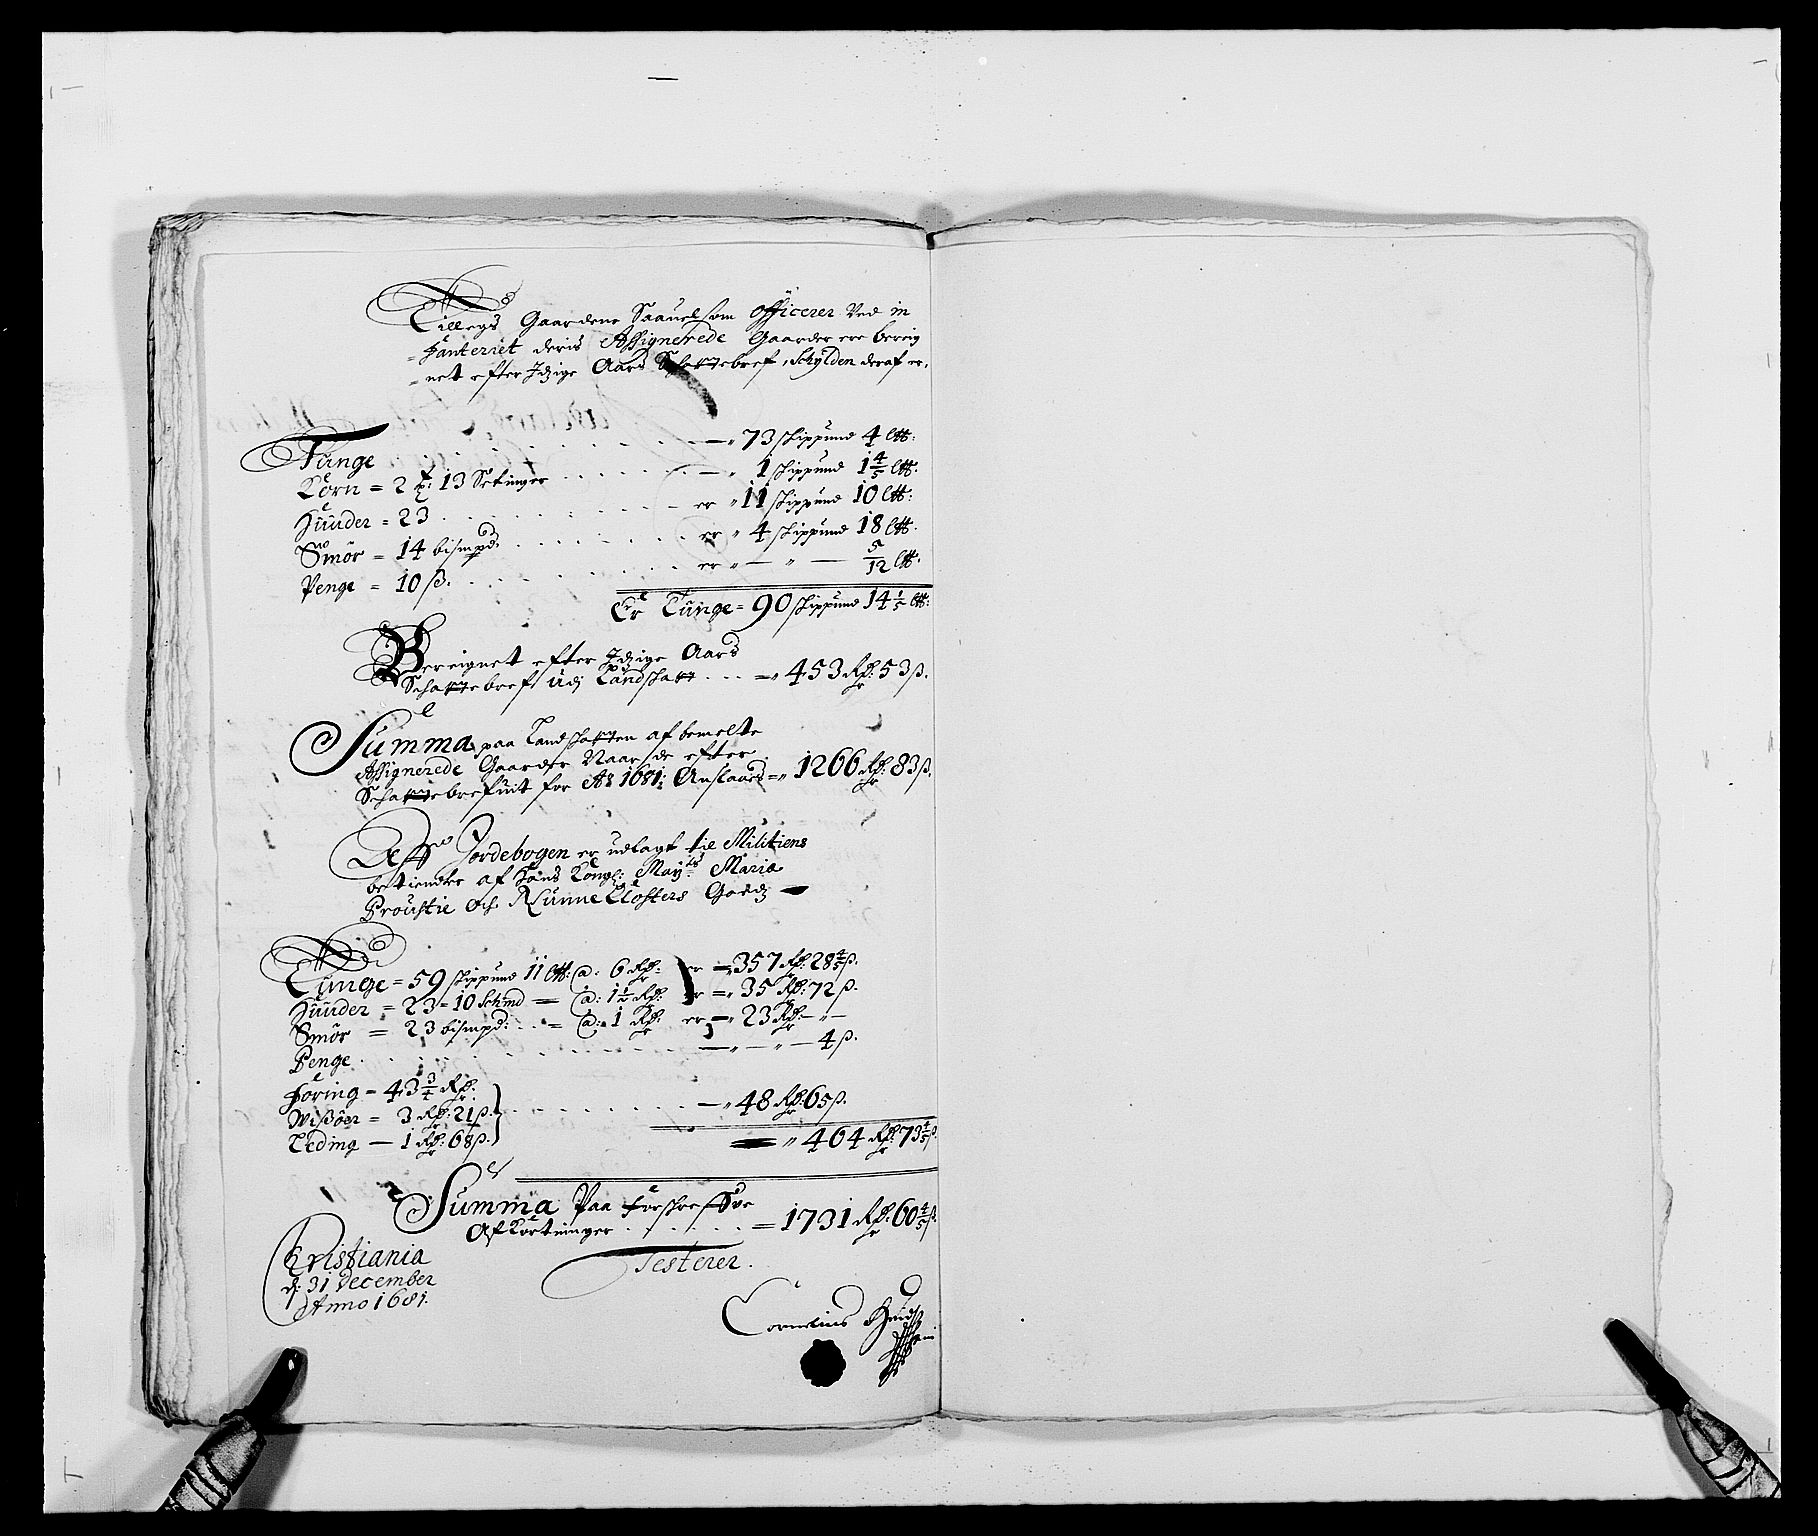 Tillegs Gaardene Saauel som Officerer Ved in
=fanteriet deris Assignerede Gaarder ere bereig
=net efter Idzige Aars Schattebref, Schylden deraf er,
Tunge . . . . . . . — „ 73 skippund 4 ltt:
Korn = 2 t: 13 Setinger . . . . . — „ 1 skippund 1 4/5 ltt:
Huuder = 23 . . . . . . . er „ 11 skippund 10 ltt:
Smör = 14 bismpd: . . . . . . er „ 4 skippund 18 ltt:
Penge = 10 ß. . . . . . . er „ — „ — 5/12 ltt:
Er Tunge = 90 skippund 14 1/5 ltt:
Bereignet efter Idzige Aars
Schattebref udj Landskatt . . . =„ 453 Rdr: 53 ß.
Summa paa Landskatten af bemelte
Assignerede Gaarder Naar de efter
Schattebrefuit for Ao 1681: Anslaaes =„ 1266 Rdr: 83 ß.
Aff Jordebogen er udlagt til Militiens
betiendter af Hans Kongl: Mayts Maria
Proustie Och Nunne Closters Godtz —
Tunge = 59 skippund 11 ltt: a: 6 Rdr: er =„ 357 Rdr: 28 4/5 ß.
Huuder = 23 = 10 Schind = a: 1 1/2 Rdr: er =„ 35 Rdr: 72 ß.
Smör = 23 bismpd: . . = a: 1 Rdr: er =„ 23 Rdr: — „ —
Penge . . . . . . . — „ — „ — 4 ß.
Foring = 43 3/4 Rdr:
Wißöer = 3 Rdr: 21 ß. . . . . . . — „ 48 Rdr: 65 ß.
Leding — 1 Rdr: 68 ß.
= „ 464 Rdr: 73 4/5 ß.
Summa Paa forskreffne
Afkortninger . . . . . . = 1731 Rdr: 60 4/5 ß.
Christiania
d: 31 December
Anno 1681.
Testerer.
Cornelius